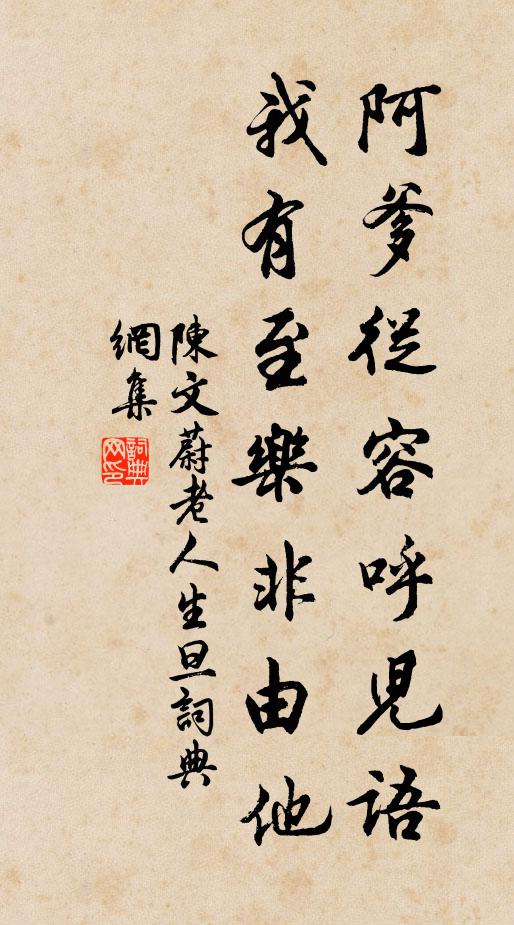 阿爹從容呼兒語
我有至樂非由他
陳文蔚老人生旦詞典
網集
詞典网印